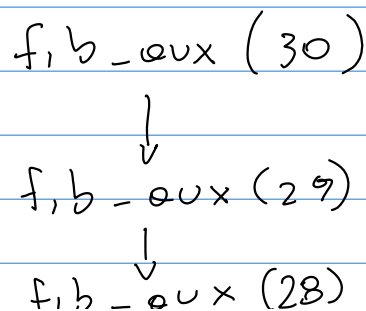 fib_aux (30)
fib_aux (29)
fib_aux (28)